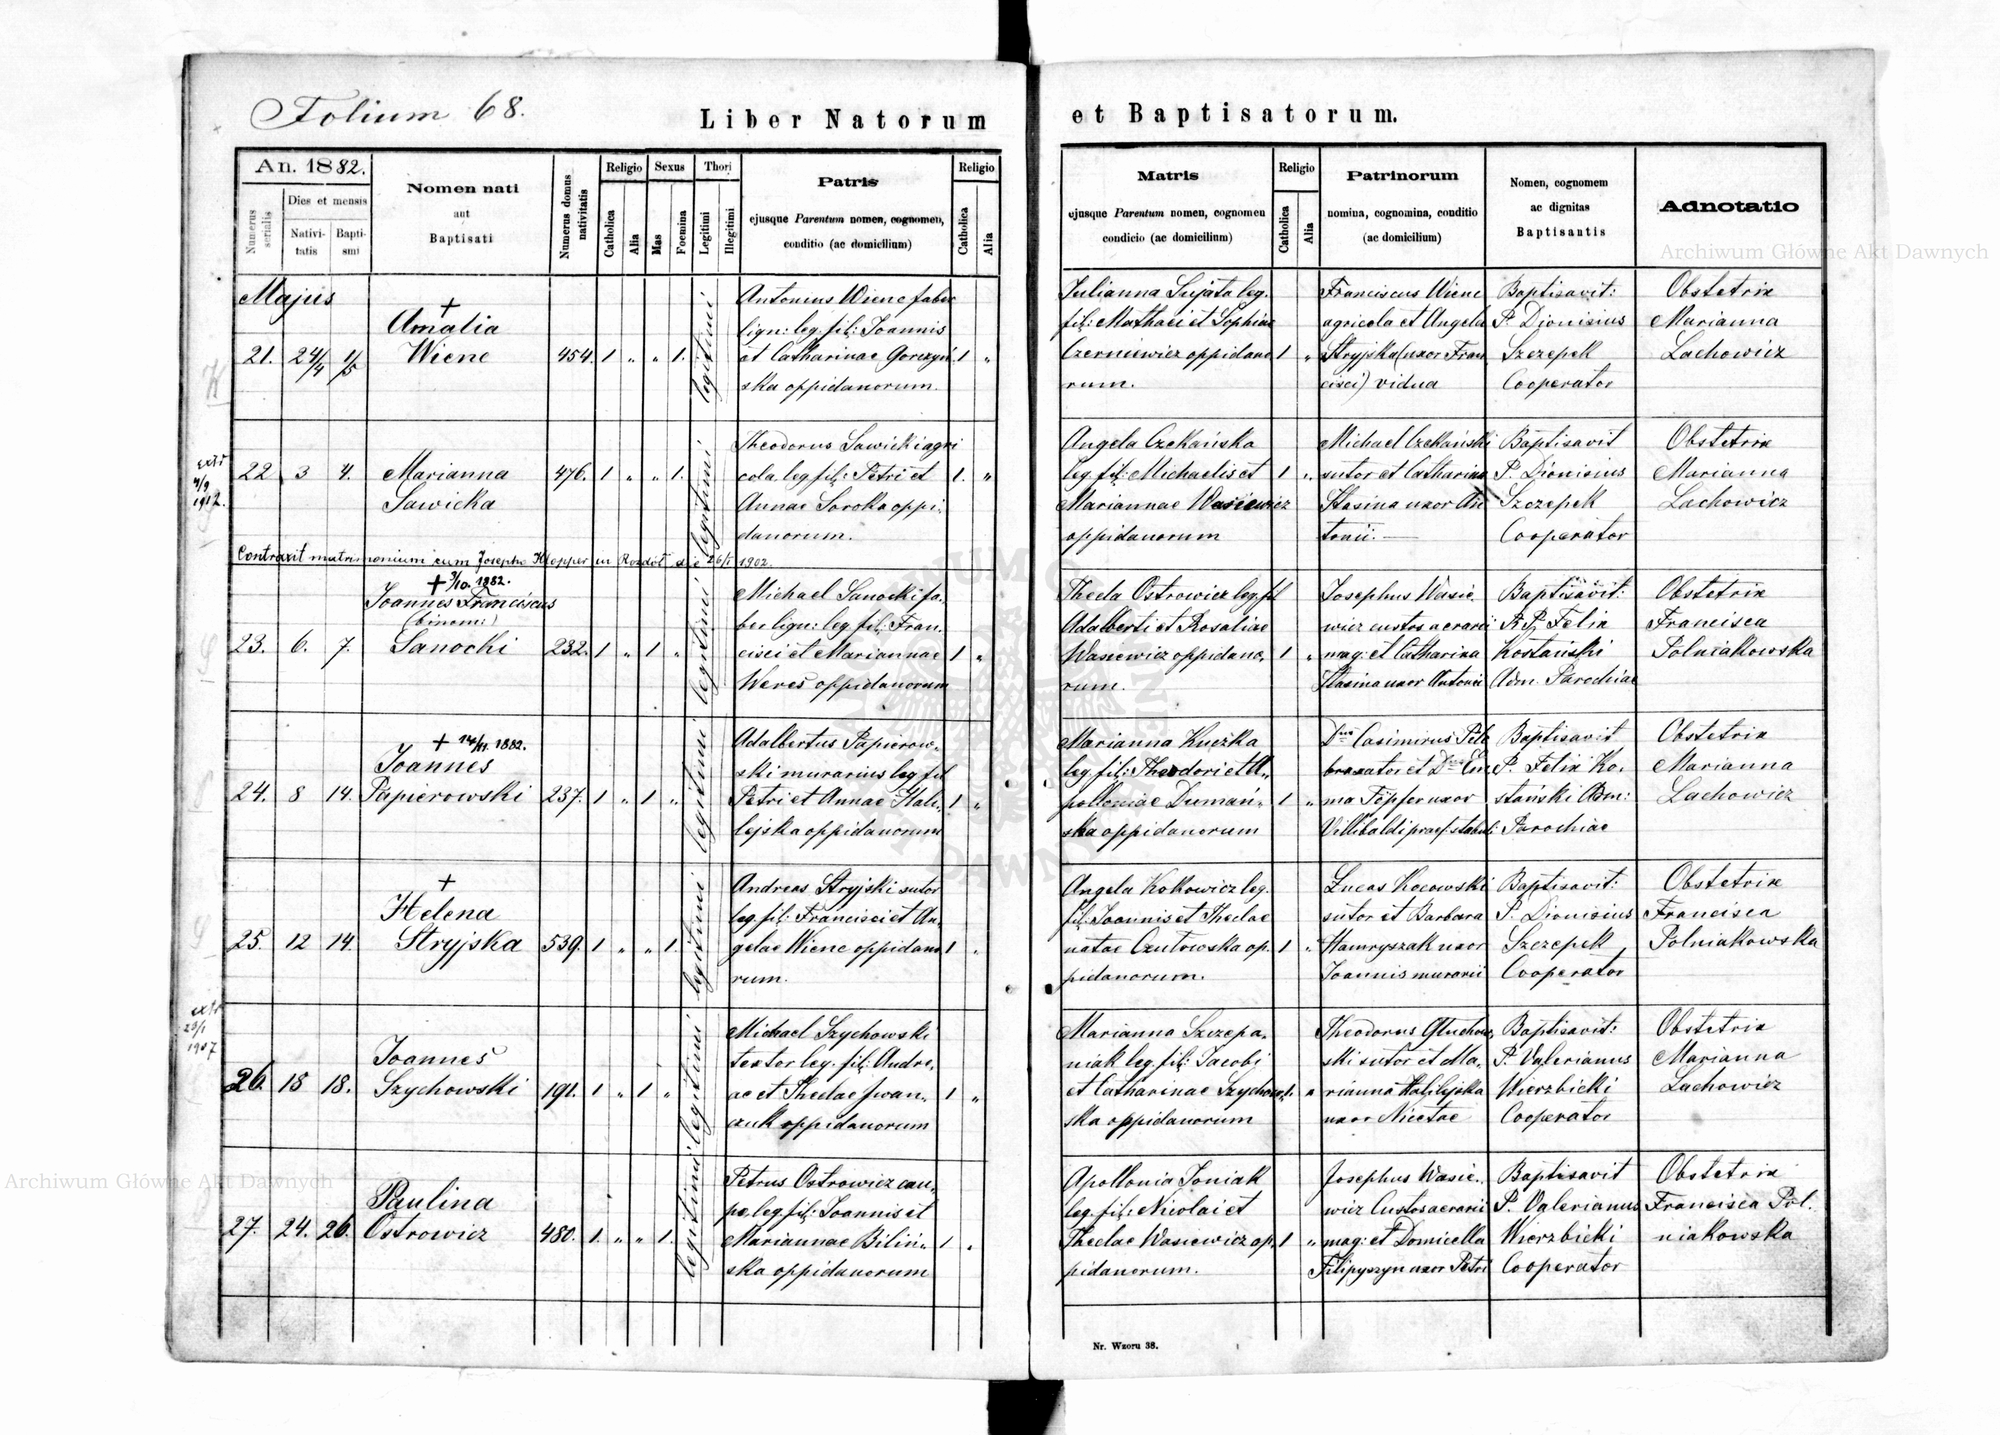 Folium 68.
Liber Natorum et Baptisatorum.
An. 1882.
Numerus serialis
Dies et mensis
Nativitatis
Baptismi
Nomen nati
aut
Baptisati
Numerus domus nativitatis
Religio
Catholica
Alia
Sexus
Mas
Foemina
Thori
Legitimi
Illegitimi
Patris
ejusque Parentum nomen, cognomen,
conditio (ac domicilium)
Religio
Catholica
Alia
Matris
ejusque Parentum nomen, cognomen
condicio (ac domicilium)
Religio
Catholica
Alia
Patrinorum
nomina, cognomina, conditio
(ac domicilium)
Nomen, cognomem
ac dignitas
Baptisantis
Adnotatio
Majus
21. 24/4 1/5
+
Amalia
Wiene
454. 1 " " 1. legitimi
Antonius Wiene faber
lign: leg. fil: Joannis
et Catharinae Gorczyń
ska oppidanorum.
1 "
Julianna Sujata leg.
fil: Mathaei et Sophiae
Czerniewicz oppidano
rum.
1 "
Franciscus Wiene
agricola et Angela
Stryjska (uxor Fran
cisci) vidua
Baptisavit:
P. Dionisius
Szczepek
Cooperator
Obstetrix
Marianna
Lachowicz
extr
4/9
1912.
22 3 4.
Marianna
Sawicka
476. 1 " " 1. legitimi
Theodorus Sawicki agri
cola leg. fil: Petri et
Annae Soroka oppi,
danorum.
1. "
Angela Czekańska
leg. fil: Michaelis et
Mariannae Wasiewicz
oppidanorum
1 "
Michael Czekański
sutor et Catharina
Stasina uxor An
tonii.
Baptisavit
P. Dionisius
Szczepek
Cooperator
Obstetrix
Marianna
Lachowicz
Contraxit matrimonium cum Josepho Klopper in Rozdół die 26/1 1902.
23. 6. 7.
+ 3/10. 1882.
Joannes Franciscus
(binom:)
Sanocki
232. 1 " 1 " legitimi
Michael Sanocki fa,
ber lign: leg. fil: Fran,
cisci et Mariannae
Weres oppidanorum
1 "
Thecla Ostrowicz leg. fil
Adalberti et Rosaliae
Wasiewicz oppidano,
rum.
1 "
Josephus Wasie,
wicz custos aerarii
mag: et Catharina
Stasina uxor Antonii
Baptisavit:
R. P. Felix
Kostański
Adm. Parochiae
Obstetrix
Francisca
Polniakowska
24. 8 14.
+ 14/11. 1882.
Joannes
Papierowski
237. 1 " 1 " legitimi
Adalbertus Papierow,
ski murarius leg fil
Petri et Annae Hali,
lejska oppidanorum
1 "
Marianna Kuczka
leg. fil: Theodori et A,
polloniae Dumań,
ska oppidanorum
1 "
Casimirus
ma Töpfer uxor
Villibaldi praef: stabul:
Baptisavit
P. Felix Ko,
stański Adm:
Parochiae
Obstetrix
Marianna
Lachowicz
25. 12 14.
+
Helena
Stryjska
539. 1 " " 1. legitimi
Andreas Stryjski sutor
leg. fil: Francisci et An,
gelae Wiene oppidano
rum.
1 "
Angela Kokowicz leg.
fil: Joannis et Theclae
natae Czutowska op,
pidanorum.
1 "
Lucas Kocowski
sutor et Barbara
Hawryszak uxor
Joannis murarii
Baptisavit:
P. Dionisius
Szczepek,
Cooperator
Obstetrix
Francisca
Polniakowska
extr
23/1
1907
26. 18 18.
Joannes
Szychowski
191. 1 " 1 " legitimi
Michael Szychowski
textor leg. fil: Andre,
ae et Theclae Iwan,
czuk oppidanorum
1 "
Marianna Szczepa,
niak leg. fil: Jacobi
et Catharinae Szychow,
ska oppidanorum
1. "
Theodorus Gluchow,
ski sutor et Ma,
rianna Halilejska
uxor Nicetae
Baptisavit:
P. Valerianus
Wierzbicki
Cooperator
Obstetrix
Marianna
Lachowicz
27. 24. 26.
Paulina
Ostrowicz
480. 1. " " 1. legitimi
Petrus Ostrowicz cau,
po, leg. fil: Joannis et
Mariannae Biliń,
ska oppidanorum
1 "
Apollonia Joniak
leg. fil: Nicolai et
Theclae Wasiewicz op,
pidanorum.
1 "
Josephus Wasie,
wicz Custos aerarii
mag: et Domicella
Filipyszyn uxor Petri
Baptisavit
P. Valerianus
Wierzbicki
Cooperator
Obstetrix
Francisca Pol.
niakowska
Nr. Wzoru 38.
Archiwum Główne Akt Dawnych
Archiwum Główne Akt Dawnych